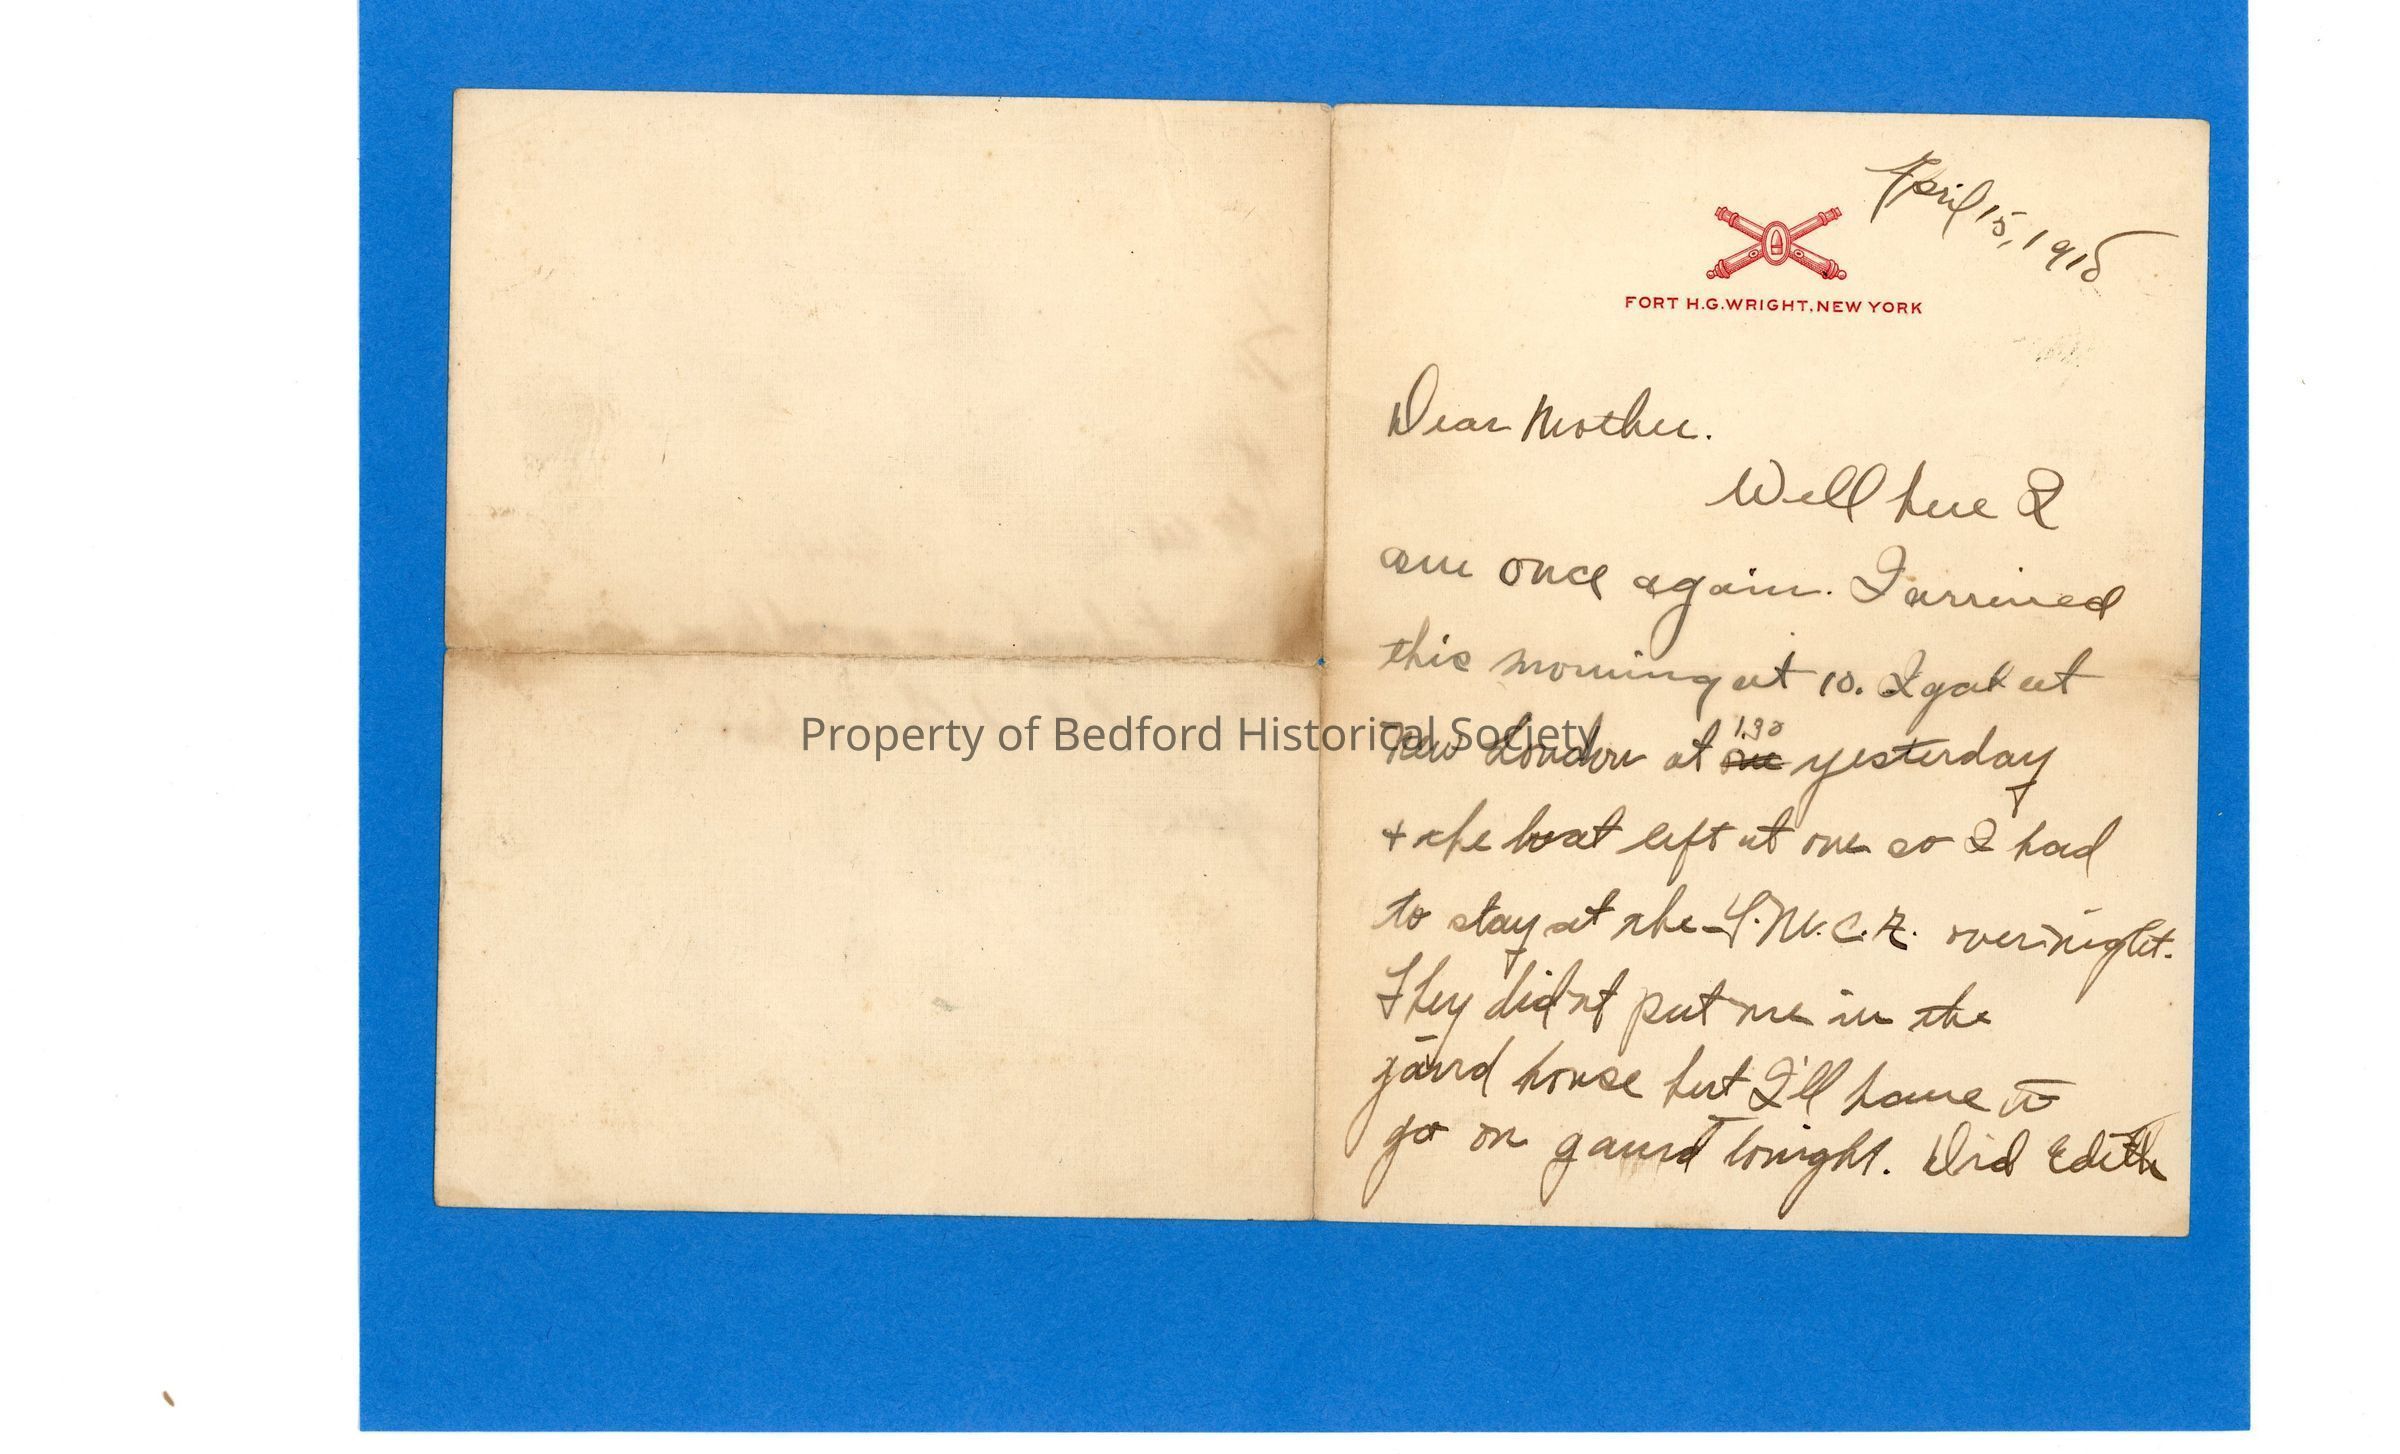 April 15, 1915
FORT H.G.WRIGHT, NEW YORK
Dear Mother.
Well here I
am once again. I arrived
this morning at 10. I got at
New London at one 1.30 yesterday
+ the boat left at one so I had
to stay at the Y.M.C.A. overnight.
They didn't put me in the
gaurd house but I'll have to
go on gaurd tonight. Did Edith
Property of Bedford Historical Society